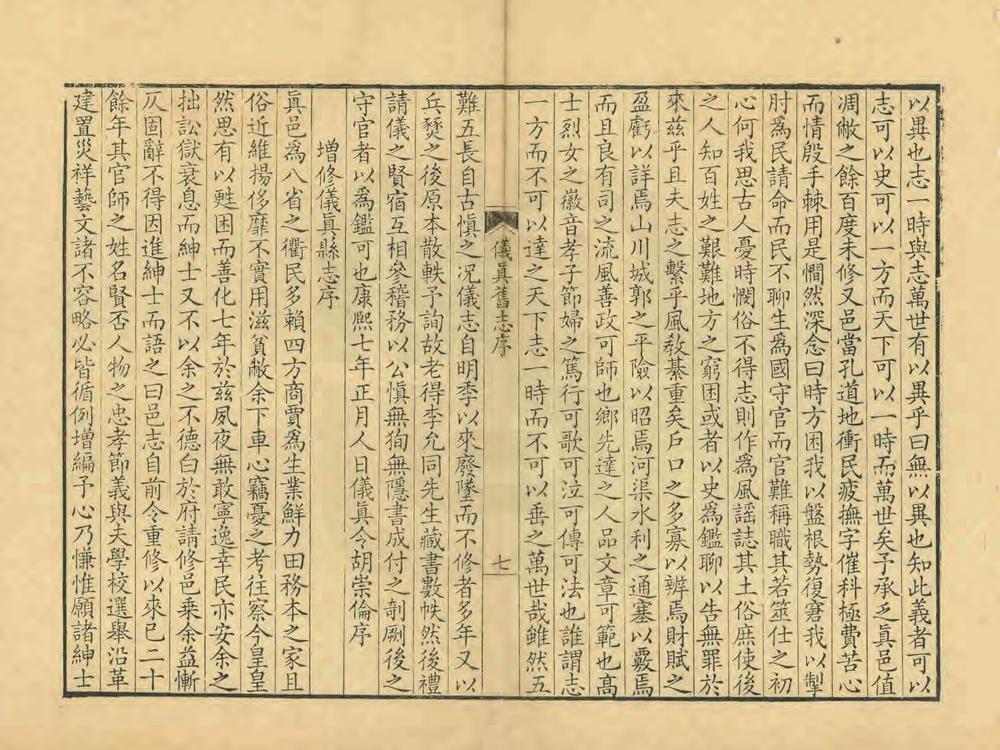 以異也志一時與志萬世有以異乎曰無以異也知此義者可以
志可以史可以一方而天下可以一時而萬世矣予承乏眞邑值
凋敝之餘百度未修又邑當孔道地衝民疲撫字催科極費苦心
而情殷手棘用是憪然深念曰時方困我以盤根勢復窘我以掣
肘爲民請命而民不聊生爲國守官而官難稱職其若筮仕之初
心何我思古人憂時憫俗不得志則作爲風謡誌其土俗庶使後
之人知百姓之艱難地方之窮困或者以史爲鑑聊以告無罪於
來茲乎且夫志之繫乎風敎綦重矣戶口之多寡以辨焉財賦之
盈虧以詳焉山川城郭之平險以昭焉河渠水利之通塞以覈焉
而且良有司之流風善政可師也鄉先達之人品文章可範也高
士烈女之徽音孝子節婦之篤行可歌可泣可傳可法也誰謂志
一方而不可以達之天下志一時而不可以垂之萬世哉雖然五
儀眞舊志序
七
難五長自古愼之况儀志自明季以來廢墜而不修者多年又以
兵燹之後原本散軼予詢故老得李允同先生藏書數帙然後禮
請儀之賢宿互相參稽務以公愼無狥無隱書成付之剞劂後之
守官者以爲鑑可也康熙七年正月人日儀眞令胡崇倫序
增修儀眞縣志序
眞邑爲八省之衢民多賴四方商賈爲生業鮮力田務本之家且
俗近維揚侈靡不實用滋貧敝余下車心竊憂之考往察今皇皇
然思有以甦困而善化七年於兹夙夜無敢寧逸幸民亦安余之
拙訟獄衰息而紳士又不以余之不德白於府請修邑乘余益慚
仄固辭不得因進紳士而語之曰邑志自前令重修以來已二十
餘年其官師之姓名賢否人物之忠孝節義與夫學校選舉沿革
建置災祥藝文諸不容略必皆循例增編予心乃慊惟願諸紳士